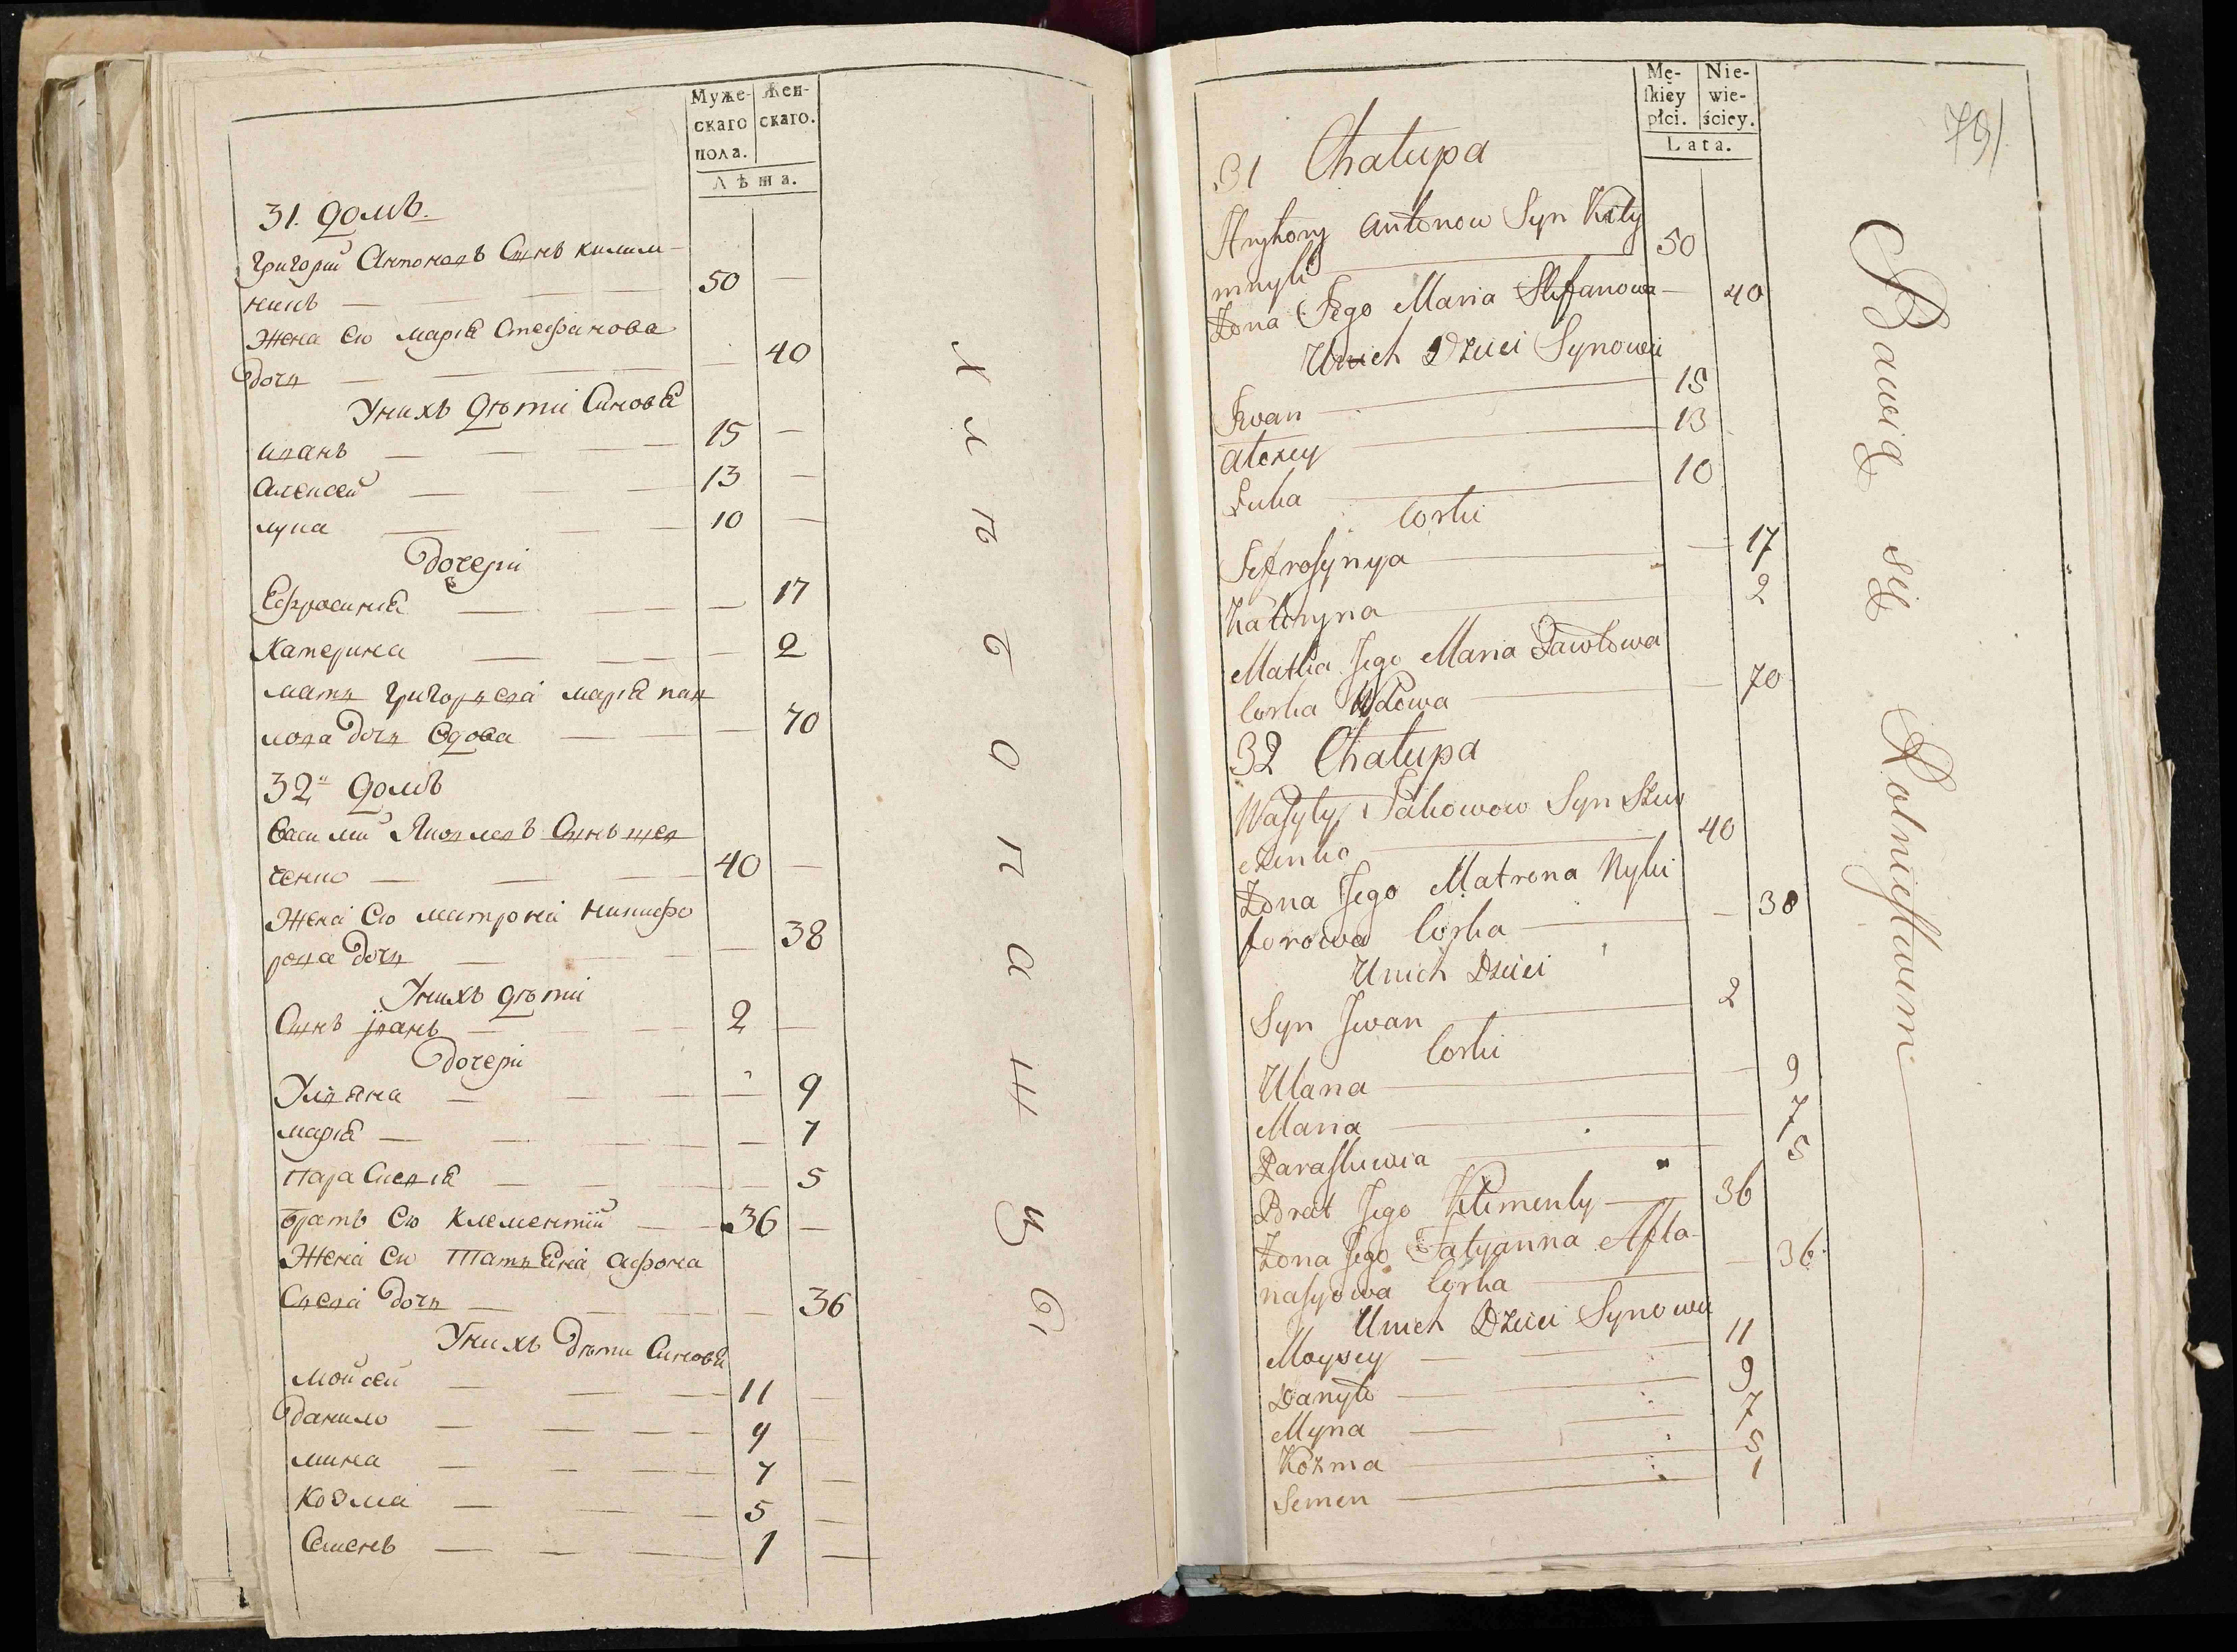 Муже-
скаго
пола.
Жен-
скаго.
Лѣта.
31. Домъ.
Григорій Антоновъ Сынъ килим
никъ — 50 —
Жена Его Марія Стефанова
дочь — 40
У нихъ Дѣти Синовя
иванъ — 15 —
Алексей — 13 —
лука — 10 —
дочери
Ефросинія — 17
Катерина — 2
мать Григорьева марія пав
лова дочь Вдова — 70
32й Домъ
Василий Яковлевъ Сынъ шев
ченко — 40 —
Жена Его матрона никифо
рова дочь — 38
У нихъ дѣти
Сынъ іванъ — 2 —
дочери
Ульяна — 9
марія — 7
параскевія — 5
братъ Его климентій — 36 —
Жена Его татьяна афона
сьева дочь — 36
У нихъ дѣти Синовя
мойсей — 11 —
данило — 9 —
мина — 7 —
козма — 5 —
Семенъ — 1 —
Хлѣбопашцы
Mę-
skiey
płci.
Nie-
wie-
ściey.
Lata.
79
31 Chałupa
Hryhory Antonow Syn Kily
mnyk — 50
Żona Jego Maria Stefanowa — 40
U nich Dzieci Synowie
Iwan — 15
Alexey — 13
Łuka — 10
Corki
Jefrosynya — 17
Kateryna — 2
Matka Jego Maria Pawłowa
Corka Wdowa — 70
32 Chałupa
Wasyly Jakowow Syn Szew
czenko — 40
Żona Jego Matrona Nyki
forowa Corka — 38
U nich Dzieci
Syn Iwan — 2
Corki
Ulana — 9
Maria — 7
Paraskewia — 5
Brat Jego Klimenty — 36
Żona Jego Tatyanna Afta-
nasyowa Corka — 36
U nich Dzieci Synowie
Moysey — 11
Danyło — 9
Myna — 7
Kozma — 5
Semen — 1
Bawią się Rolnictwem